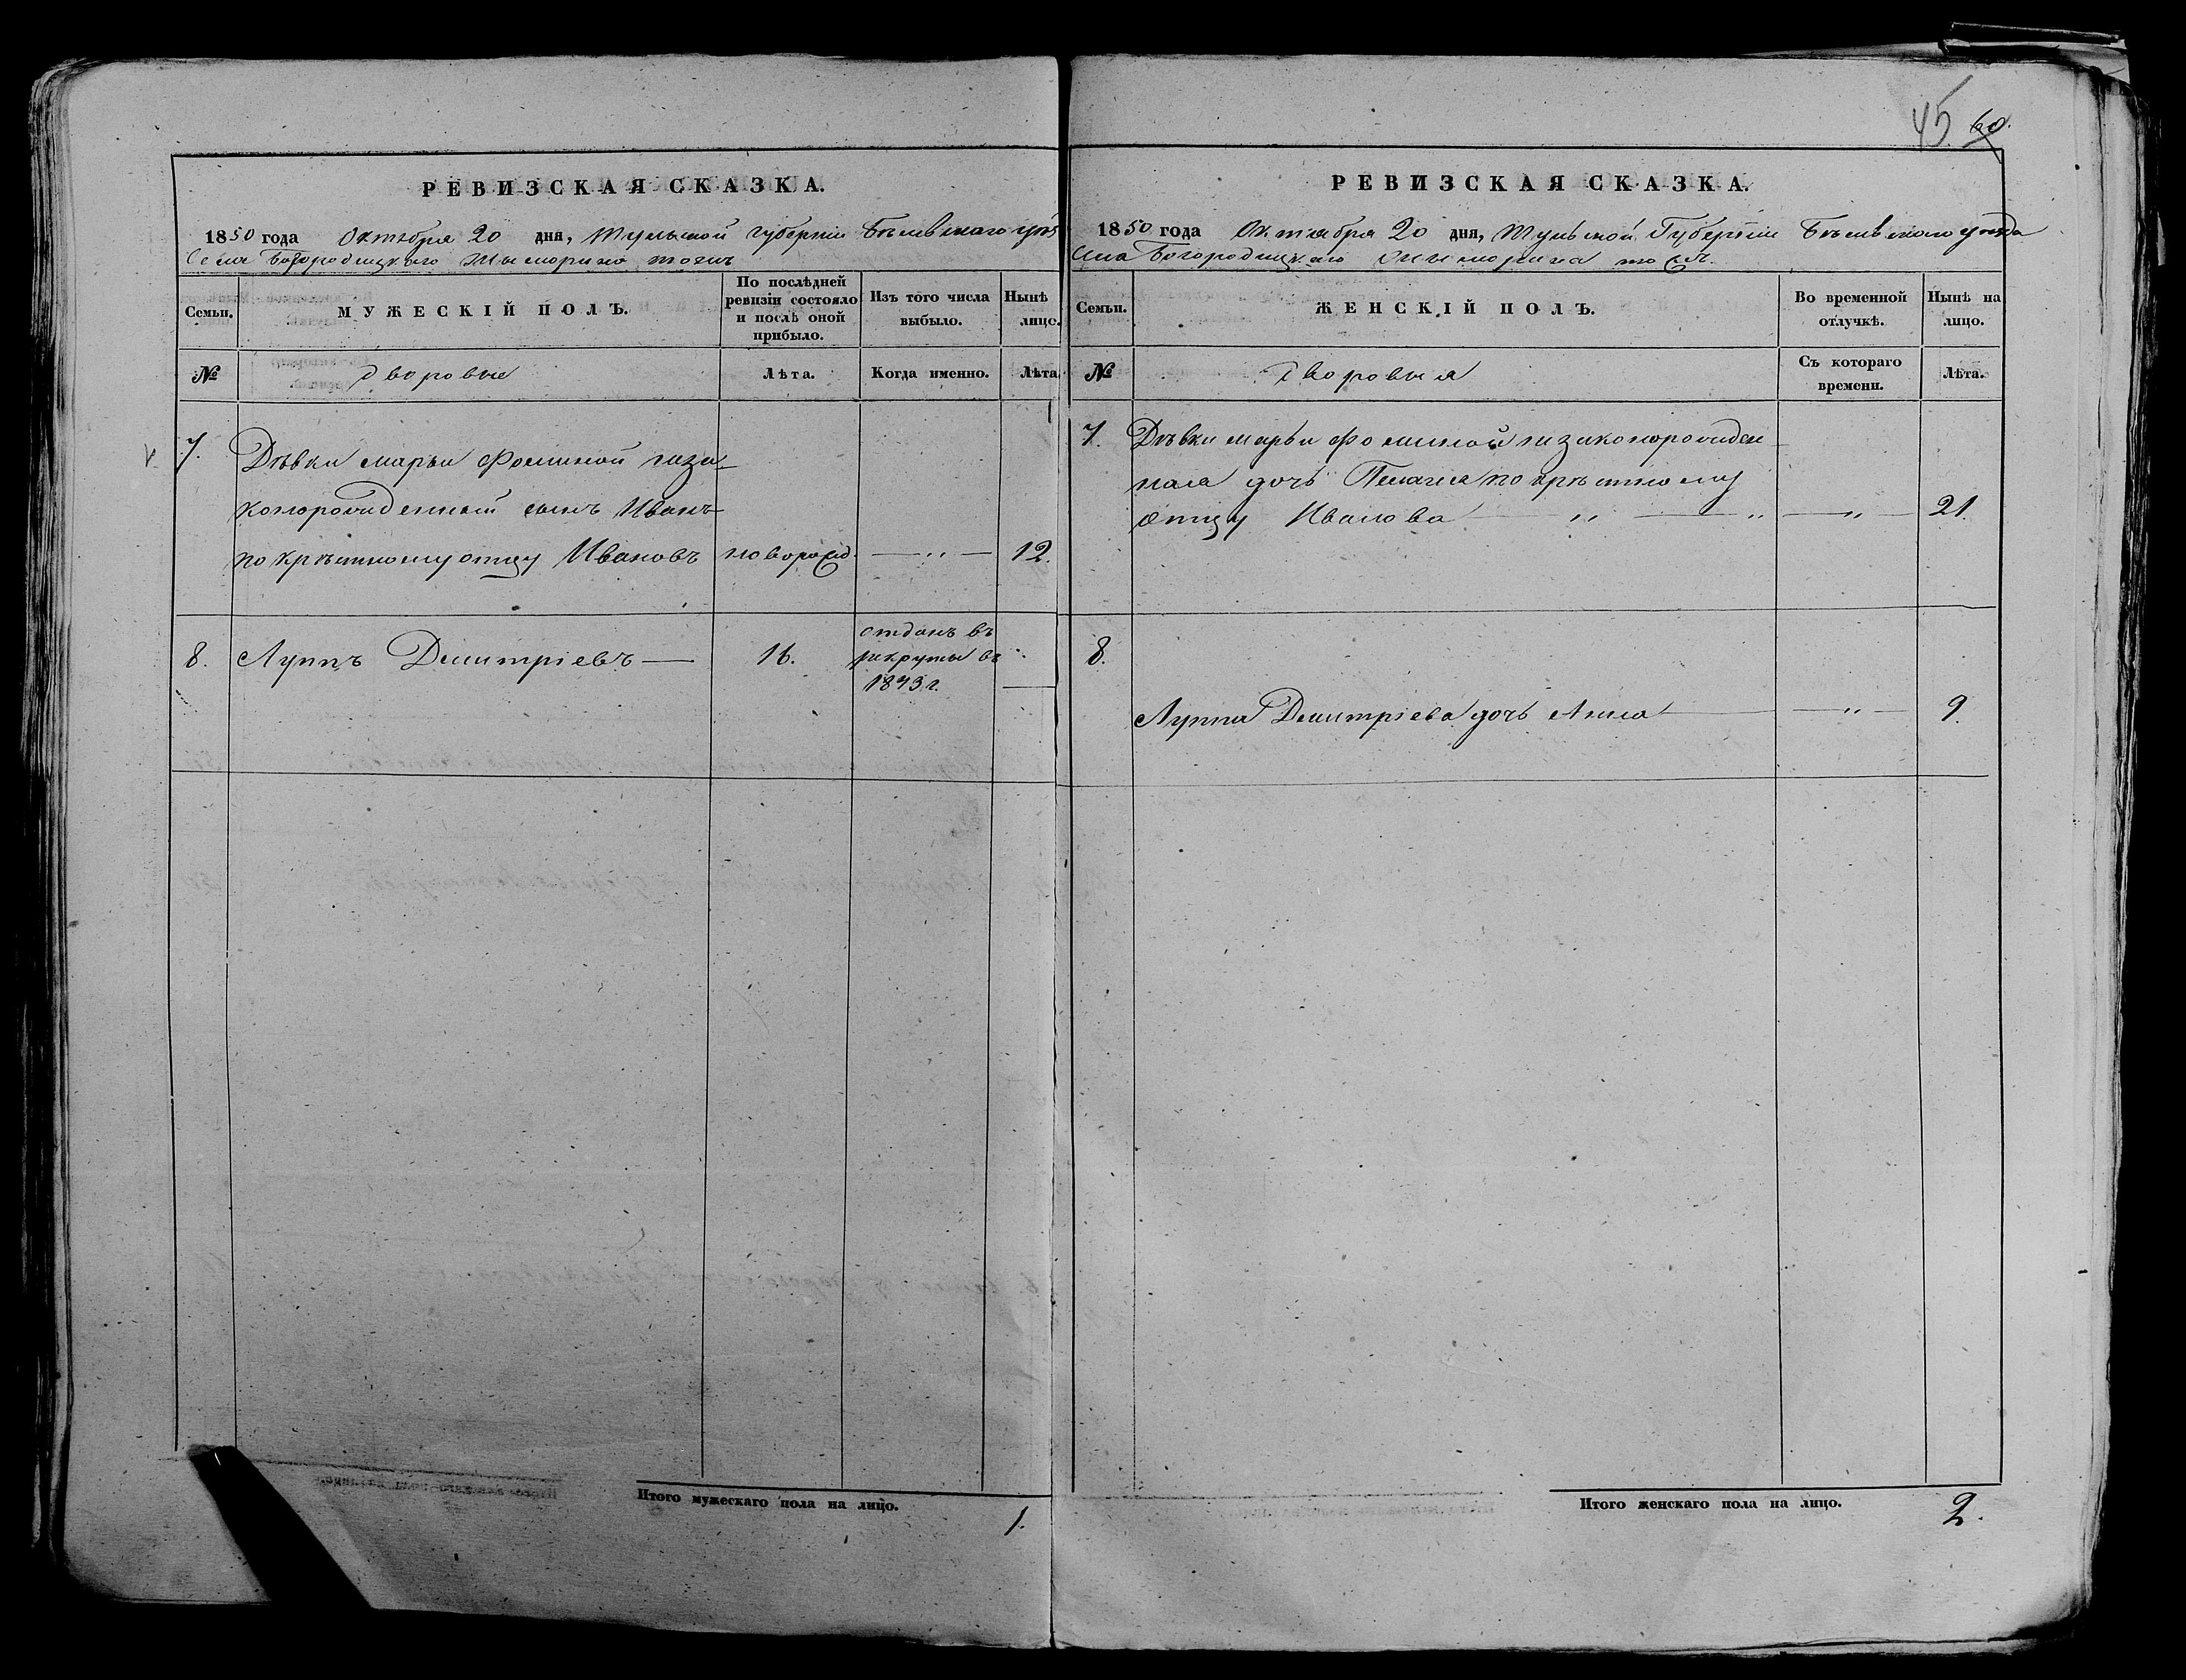 45 60.
РЕВИЗСКАЯ СКАЗКА.
1850 года Октября 20 дня, Тульской губерніи Бѣлевскаго уѣз
Села Богородицкаго тожъ
Семьи. МУЖЕСКІЙ ПОЛЪ. По послѣдней ревизіи состояло и послѣ оной прибыло. Изъ того числа выбыло. Нынѣ лицо.
№ дворовые Лѣта. Когда именно. Лѣта
7. Дѣвки Марьи Фоминой неза-
конорожденный сынъ Иванъ
по крѣстному отцу Ивановъ новорожд. — " — 12.
8. Луппъ Дмитріевъ — 16. отданъ въ
рекруты въ
1843 г.
Итого мужескаго пола на лицо.
1.
РЕВИЗСКАЯ СКАЗКА.
1850 года Октября 20 дня, Тульской Губерніи Бѣлевскаго уѣзда
Села Богородицкаго тожъ.
Семьи. ЖЕНСКІЙ ПОЛЪ. Во временной отлучкѣ. Нынѣ на лицо.
№ дворовыя Съ котораго времени. Лѣта.
7. Дѣвки Марьи Фоминой незаконорожден
ная дочь Пелагея по крѣстному
отцу Иванова — " — " — " — 21.
8.
Луппа Дмитріева дочь Анна — " — 9.
Итого женскаго пола на лицо.
2.